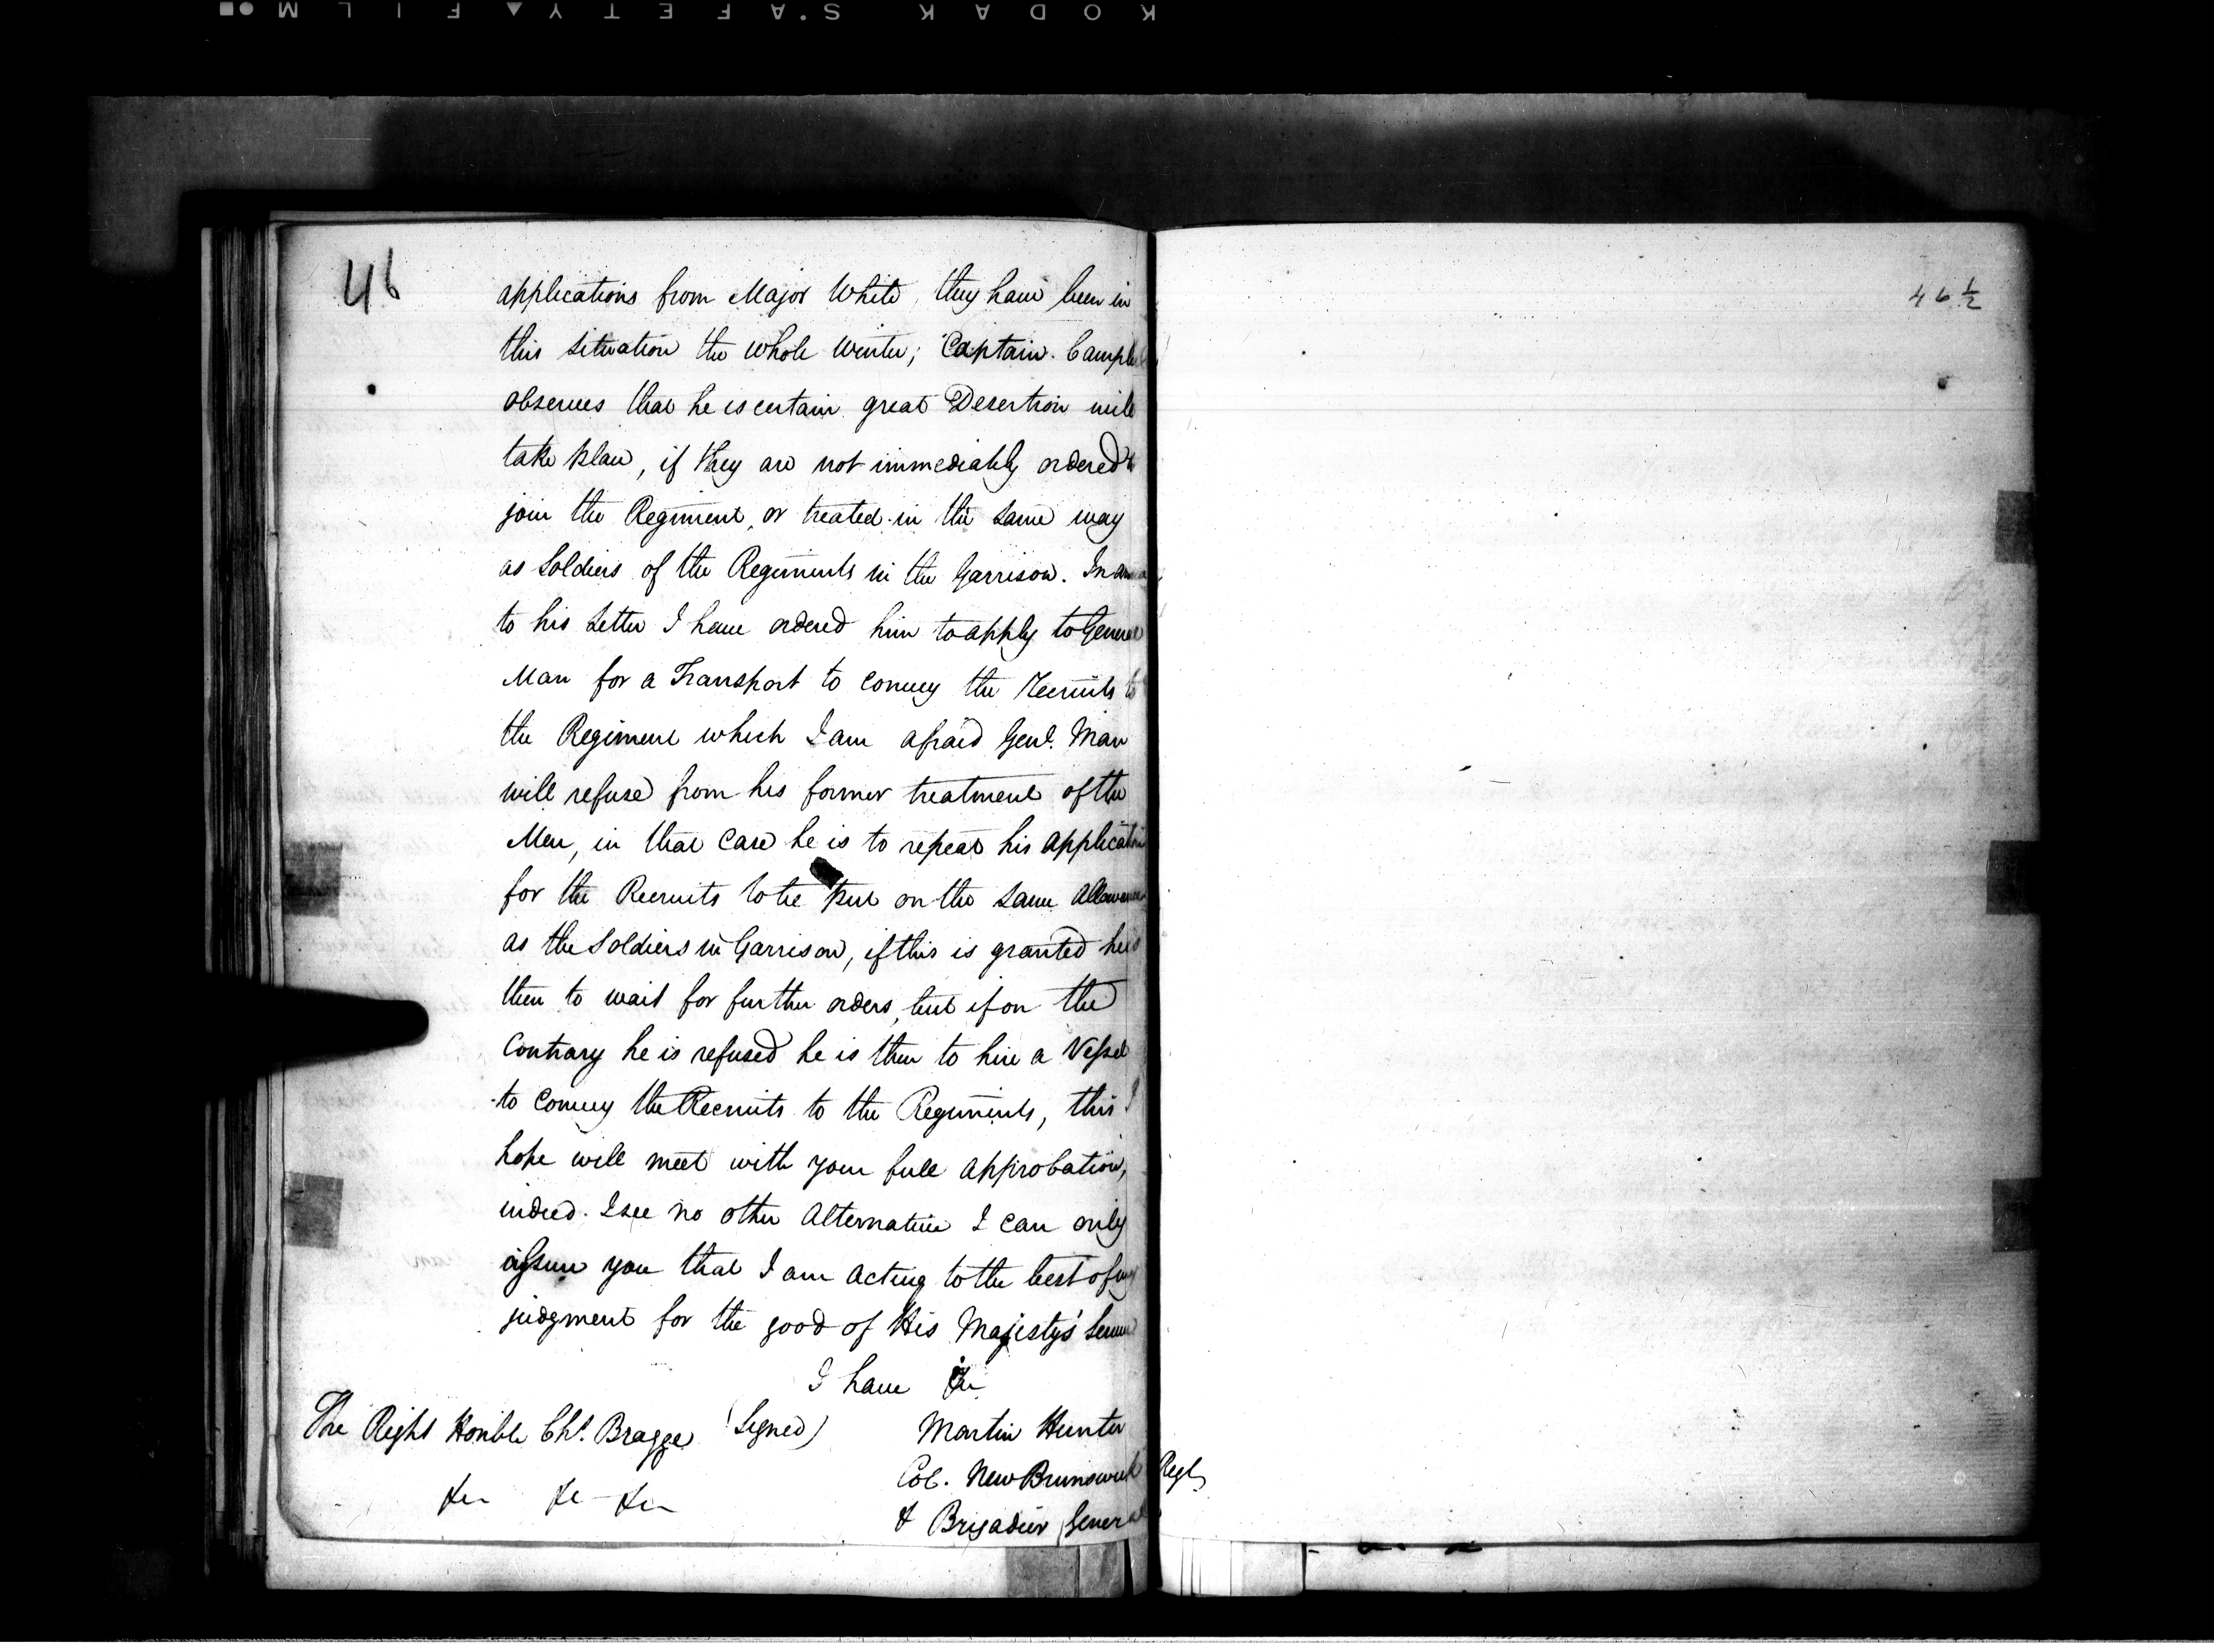 KODAK SAFETY FILM
46
applications from Major White, they have been in
this situation the whole Winter; Captain Campbell
observes that he is certain great Desertion will
take place, if they are not immediately ordered to
join the Regiment, or treated in the same way
as Soldiers of the Regiments in the Garrison. In
to his Letter I have ordered him to apply to General
Man for a Transport to convey the Recruits to
the Regiment which I am afraid Genl. Man
will refuse from his former treatment of the
Men, in that Case he is to repeat his application
for the Recruits to be put on the same Allowance
as the Soldiers in Garrison, if this is granted he is
then to wait for further orders, but if on the
Contrary he is refused he is then to hire a Vessel
to Convey the Recruits to the Regiments, this I
hope will meet with your full approbation,
indeed I see no other Alternative I can only
assure you that I am acting to the best of my
judgment for the good of His Majesty's Service
I have &c
The Right Honble Chs. Bragge (Signed) Martin Hunter
Col. New Brunswick Regt
&c &c &c & Brigadier General
46 1/2